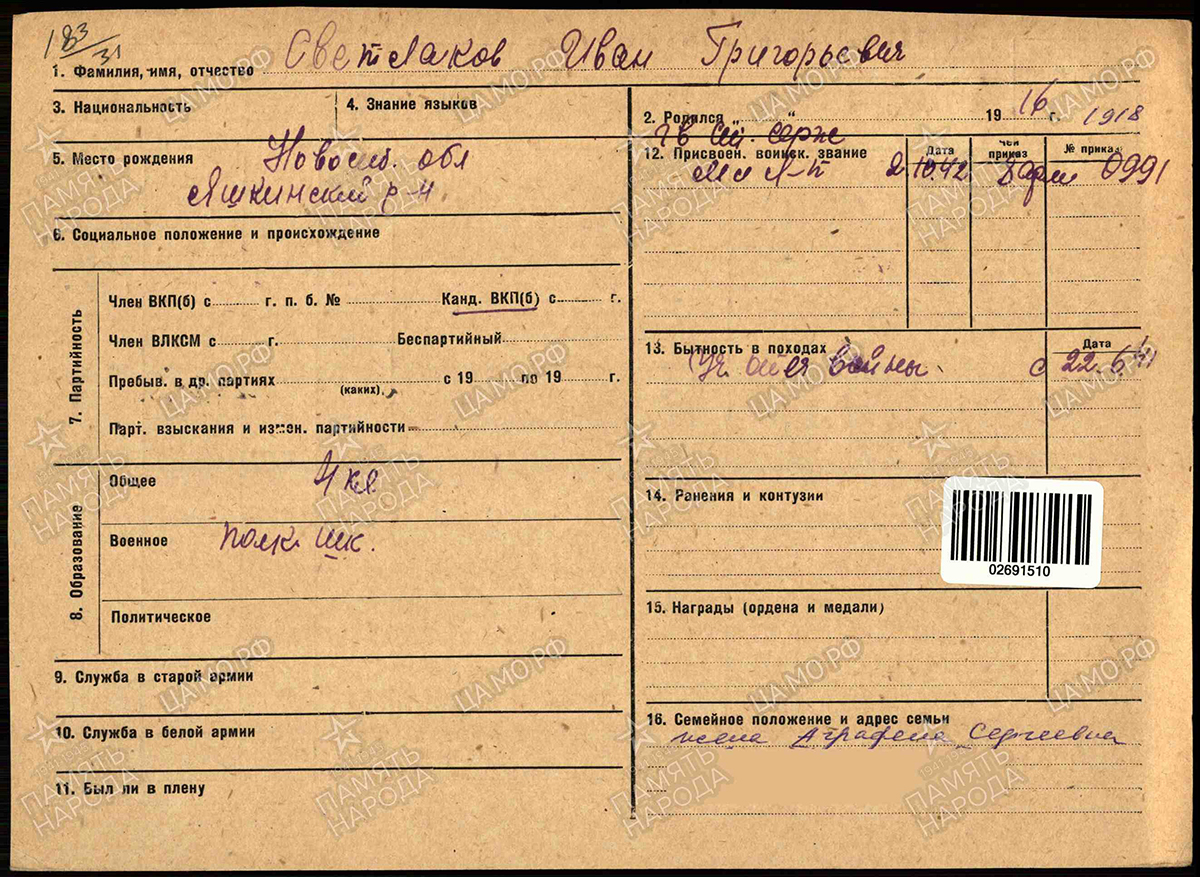 183/31
1. Фамилия, имя, отчество Светлаков Иван Григорьевич
3. Национальность
4. Знание языков
5. Место рождения Новосиб. обл
Яшкинский р-н
6. Социальное положение и происхождение
7. Партийность
Член ВКП(б) с г. п. б. № Канд. ВКП(б) с г.
Член ВЛКСМ с г. Беспартийный
Пребыв. в др. партиях (каких) с 19 по 19 г.
Парт. взыскания и измен. партийности
8. Образование
Общее 4 кл
Военное полк. шк.
Политическое
9. Служба в старой армии
10. Служба в белой армии
11. Был ли в плену
2. Родился „ “ 1916 г. 1918
гв ст. серж
12. Присвоен. воинск. звание Дата Чей приказ № приказ
Мл л-т 2.10.42 8 арм 0991
13. Бытность в походах Дата
Уч. от. войны с 22.6.41
14. Ранения и контузии
02691510
15. Награды (ордена и медали)
16. Семейное положение и адрес семьи
жена Аграфена Сергеевна
ПАМЯТЬ НАРОДА
ЦАМО.РФ